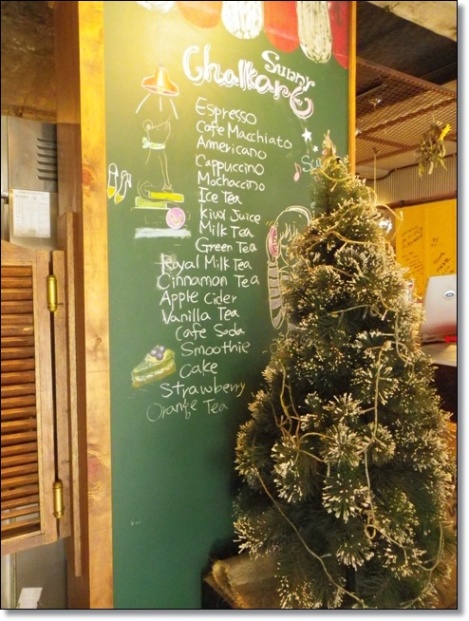 Sunny
Chalkart
Espresso
Cafe Macchiato
Americano
Cappuccino
Mochaccino
Ice Tea
Kiwi Juice
Milk Tea
Green Tea
Royal Milk Tea
Cinnamon Tea
Apple Cider
Vanilla Tea
Cafe Soda
Smoothie
Cake
Strawberry
Orange Tea